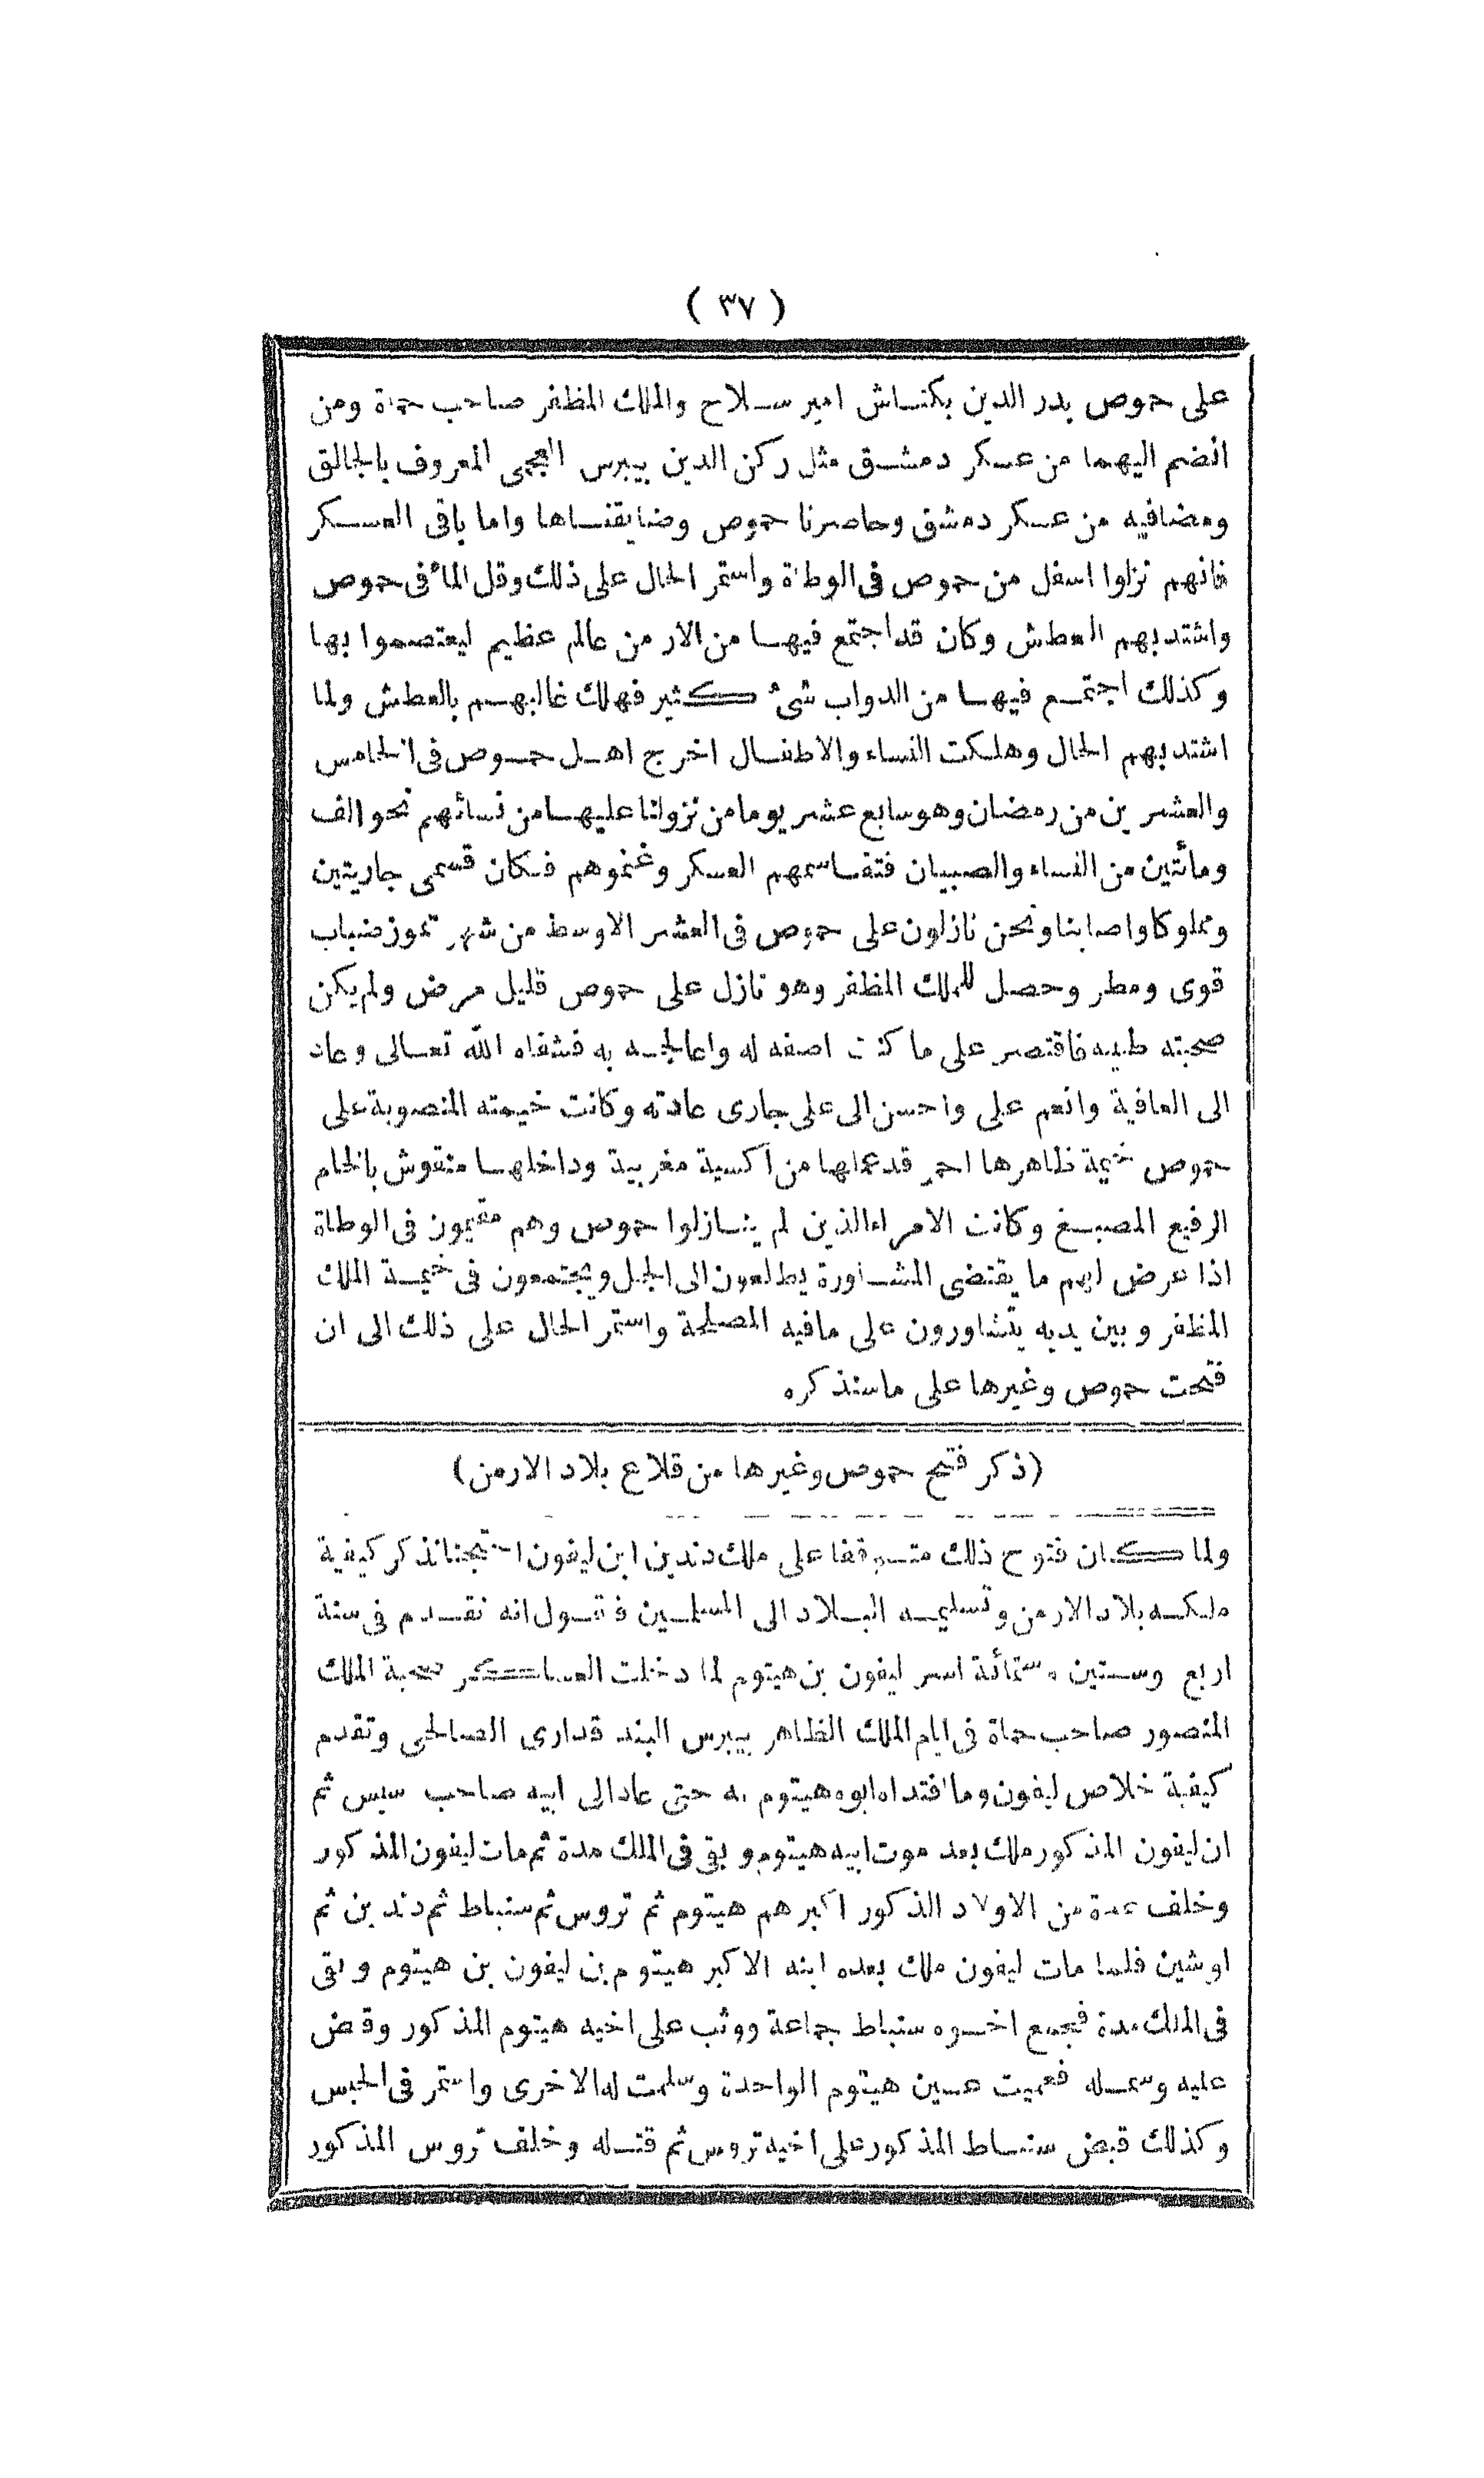 ( ٣٧ )
على حموص بدر الدين بكتاش امير سلاح والملك المظفر صاحب حماة ومن
انضم اليهما من عسكر دمشق مثل ركن الدين بيبرس العجمى المعروف بالجالق
ومضافيه من عسكر دمشق وحاصرنا حموص وضايقناها واما باقى العسكر
فانهم نزلوا اسفل من حموص فى الوطاة واستمر الحال على ذلك وقل الماء فى حموص
واشتد بهم العطش وكان قد اجتمع فيها من الارمن عالم عظيم ليعتصموا بها
وكذلك اجتمع فيها من الدواب شئ كثير فهلك غالبهم بالعطش ولما
اشتد بهم الحال وهلكت النساء والاطفال اخرج اهل حموص فى الخامس
والعشرين من رمضان وهو سابع عشر يوما من نزولنا عليها من نسائهم نحو الف
ومائتين من النساء والصبيان فتقاسمهم العسكر وغنموهم فكان قسمى جاريتين
ومملوكا واصابنا ونحن نازلون على حموص فى العشر الاوسط من شهر تموز ضباب
قوى ومطر وحصل للملك المظفر وهو نازل على حموص قليل مرض ولم يكن
صحبته طبيبه فاقتصر على ما كنت اصفه له واعالجه به فشفاه الله تعالى وعاد
الى العافية وانعم على واحسن الى على جارى عادته وكانت خيمته المنصوبة على
حموص خيمة ظاهرها احمر قد عملها من اكسية مغربية وداخلها منقوش بالخام
الرفيع المصبغ وكانت الامراء الذين لم ينازلوا حموص وهم مقيمون فى الوطاة
اذا عرض لهم ما يقتضى المشاورة يطلعون الى الجبل ويجتمعون فى خيمة الملك
المظفر وبين يديه يتشاورون على مافيه المصلحة واستمر الحال على ذلك الى ان
فتحت حموص وغيرها على ماسنذكره
(ذكر فتح حموص وغيرها من قلاع بلاد الارمن)
ولما كان فتوح ذلك متوقفا على ملك دندين ابن ليفون احتجنا نذكر كيفية
ملكه بلاد الارمن وتسليمه البلاد الى المسلمين فنقول انه نقدم فى سنة
اربع وستين وستمائة اسر ليفون بن هيتوم لما دخلت العساكر صحبة الملك
المنصور صاحب حماة فى ايام الملك الظاهر بيبرس البندقدارى الصالحى وتقدم
كيفية خلاص ليفون وما افتداه ابوه هيتوم به حتى عاد الى ابيه صاحب سيس ثم
ان ليفون المذكور ملك بعد موت ابيه هيتوم وبقى فى الملك مدة ثم مات ليفون المذكور
وخلف عدة من الاولاد الذكور اكبرهم هيتوم ثم تروس ثم سنباط ثم دندين ثم
اوشين فلما مات ليفون ملك بعده ابنه الاكبر هيتوم بن ليفون بن هيتوم وبقى
فى الملك مدة فجمع اخوه سنباط جماعة ووثب على اخيه هيتوم المذكور وقبض
عليه وسمله فعميت عين هيتوم الواحدة وسلمت له الاخرى واستمر فى الحبس
وكذلك قبض سنباط المذكور على اخيه تروس ثم قتله وخلف تروس المذكور